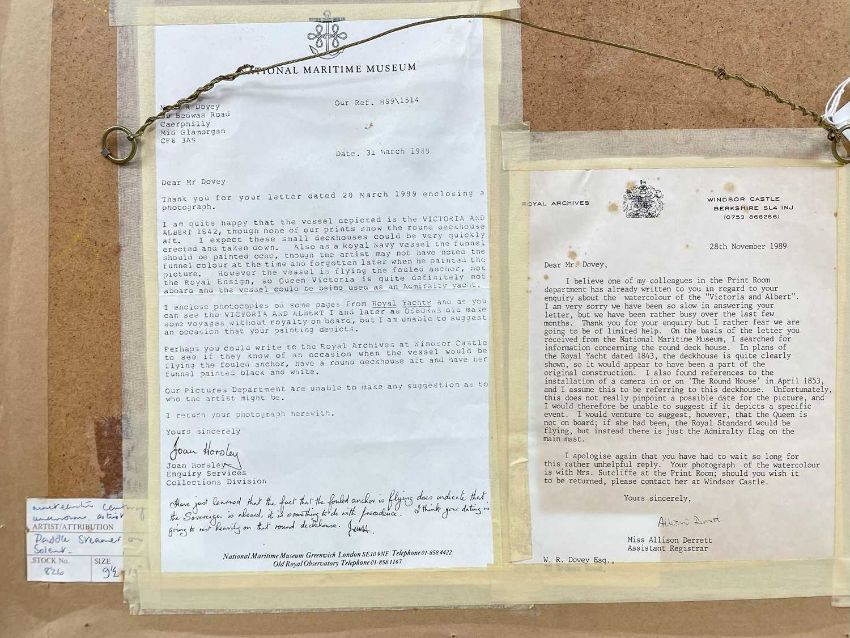 NATIONAL MARITIME MUSEUM
R Dovey
Bedwas Road
Caerphilly
Mid Glamorgan
CF8 3AS
Our Ref. H89\1514
Date. 31 March 1989
Dear Mr Dovey
Thank you for your letter dated 20 March 1989 enclosing a
photograph.
I am quite happy that the vessel depicted is the VICTORIA AND
ALBERT 1842, though none of our prints show the round deckhouse
aft. I expect these small deckhouses could be very quickly
erected and taken down. Also as a Royal Navy vessel the funnel
should be painted the artist may not have noted the
funnel colour at the time and forgotten later when he painted the
picture. However the vessel is flying the fouled anchor, not
the Royal Ensign, so Queen Victoria is quite definitely not
aboard and the vessel could be being used as an Admiralty yacht.
I enclose photocopies of some pages from Royal Yachts and as you
can see the VICTORIA AND ALBERT I and later as OSBORNE did make
some voyages without royalty on board, but I am unable to suggest
an occasion that your painting depicts.
Perhaps you could write to the Royal Archives at Windsor Castle
to see if they know of an occasion when the vessel would be
flying the fouled anchor, have a round deckhouse aft and have her
funnel painted black and white.
Our Pictures Department are unable to make any suggestion as to
who the artist might be.
I return your photograph herewith.
Yours sincerely
Joan Horsley
Joan Horsley
Enquiry Services
Collections Division
Have just learned that the fact that the fouled anchor is flying does indicate that
the Sovereign is aboard, it is something to do with precedence. I think your dating is
going to rest heavily on that round deckhouse.
National Maritime Museum Greenwich London SE10 9NF Telephone 01-858 4422
Old Royal Observatory Telephone 01-858 1167
ROYAL ARCHIVES
WINDSOR CASTLE
BERKSHIRE SL4 1NJ
(0753 868286)
28th November 1989
Dear Mr. Dovey,
I believe one of my colleagues in the Print Room
department has already written to you in regard to your
enquiry about the watercolour of the "Victoria and Albert".
I am very sorry we have been so slow in answering your
letter, but we have been rather busy over the last few
months. Thank you for your enquiry but I rather fear we are
going to be of limited help. On the basis of the letter you
received from the National Maritime Museum, I searched for
information concerning the round deck house. In plans of
the Royal Yacht dated 1843, the deckhouse is quite clearly
shown, so it would appear to have been a part of the
original construction. I also found references to the
installation of a camera in or on 'The Round House' in April 1853,
and I assume this to be referring to this deckhouse. Unfortunately,
this does not really pinpoint a possible date for the picture, and
I would therefore be unable to suggest if it depicts a specific
event. I would venture to suggest, however, that the Queen is
not on board; if she had been, the Royal Standard would be
flying, but instead there is just the Admiralty flag on the
main mast.
I apologise again that you have had to wait so long for
this rather unhelpful reply. Your photograph of the watercolour
is with Mrs. Sutcliffe at the Print Room; should you wish it
to be returned, please contact her at Windsor Castle.
Yours sincerely,
Miss Allison Derrett
Assistant Registrar
W. R. Dovey Esq.,
nineteenth century
unknown artist
ARTIST/ATTRIBUTION
Paddle Steamer on
Solent.
STOCK No.
826
SIZE
9½